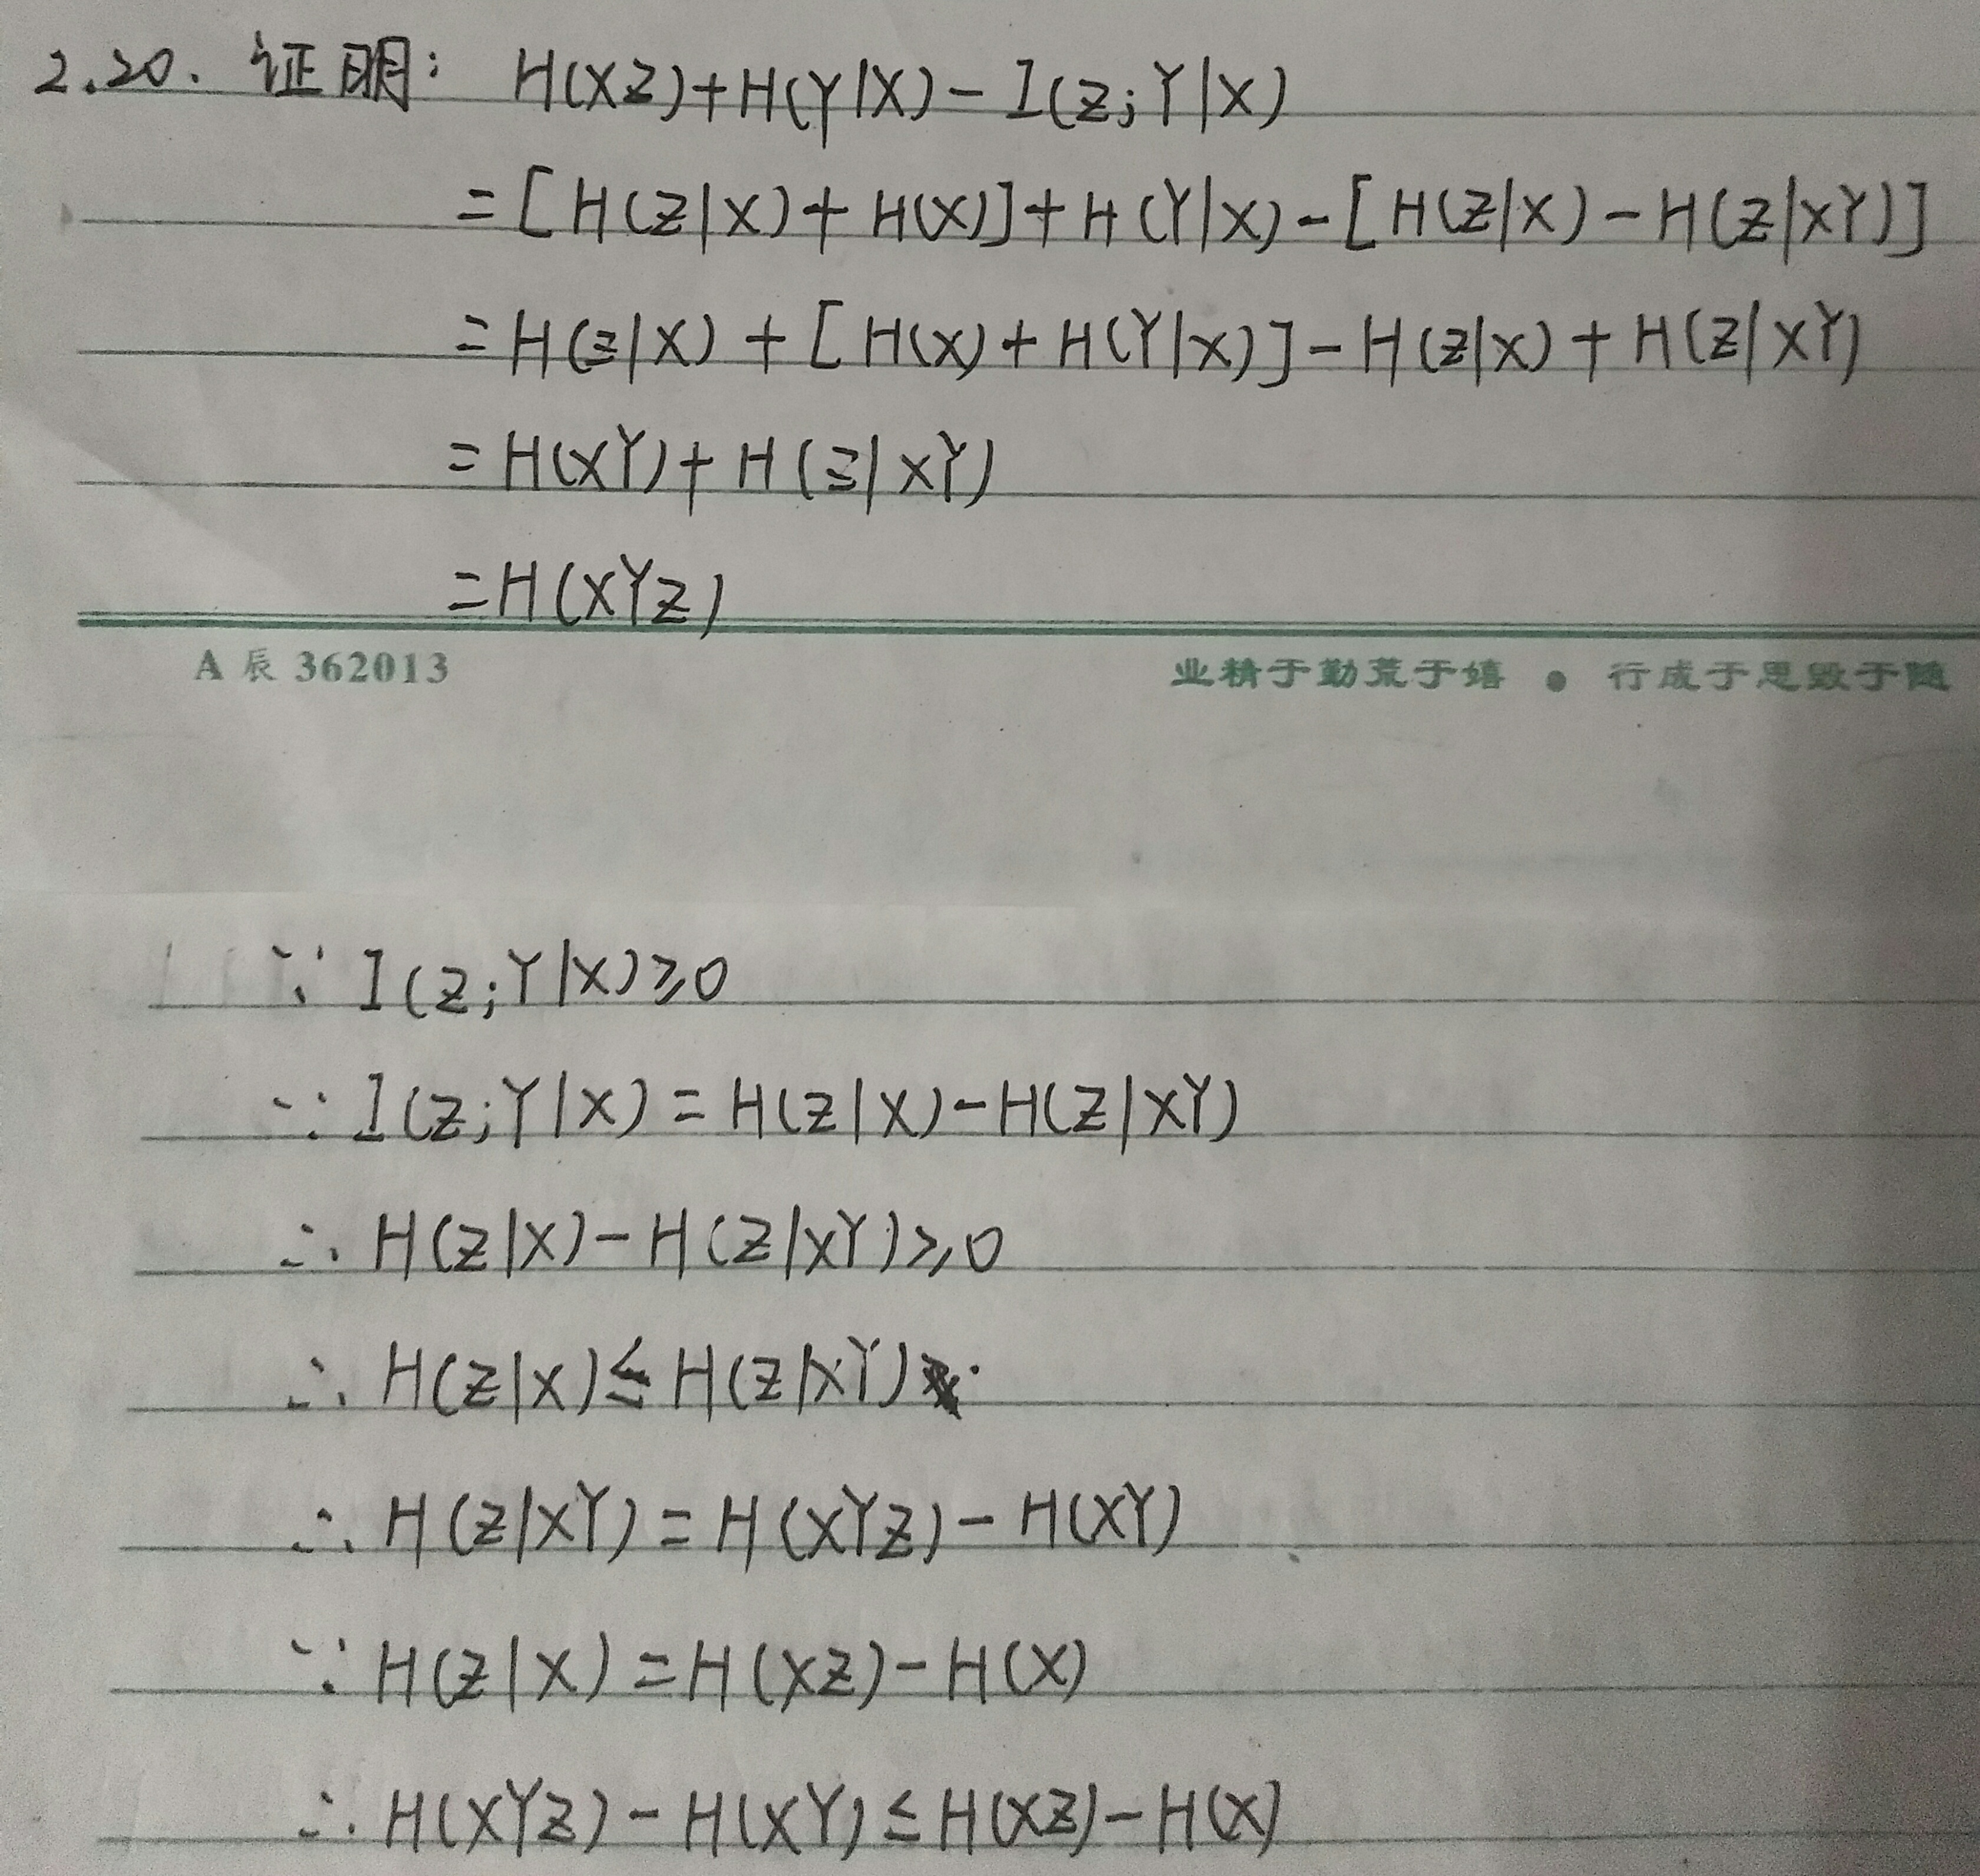 2.20. 证明: H(XZ)+H(Y|X)-I(Z;Y|X)
=[H(Z|X)+H(X)]+H(Y|X)-[H(Z|X)-H(Z|XY)]
=H(Z|X)+[H(X)+H(Y|X)]-H(Z|X)+H(Z|XY)
=H(XY)+H(Z|XY)
=H(XYZ)
A 辰 362013 业精于勤荒于嬉 ● 行成于思毁于随
∵ I(Z;Y|X)≥0
∵ I(Z;Y|X)=H(Z|X)-H(Z|XY)
∴ H(Z|X)-H(Z|XY)≥0
∴ H(Z|X)≤H(Z|XY)
∴ H(Z|XY)=H(XYZ)-H(XY)
∵ H(Z|X)=H(XZ)-H(X)
∴ H(XYZ)-H(XY)≤H(XZ)-H(X)